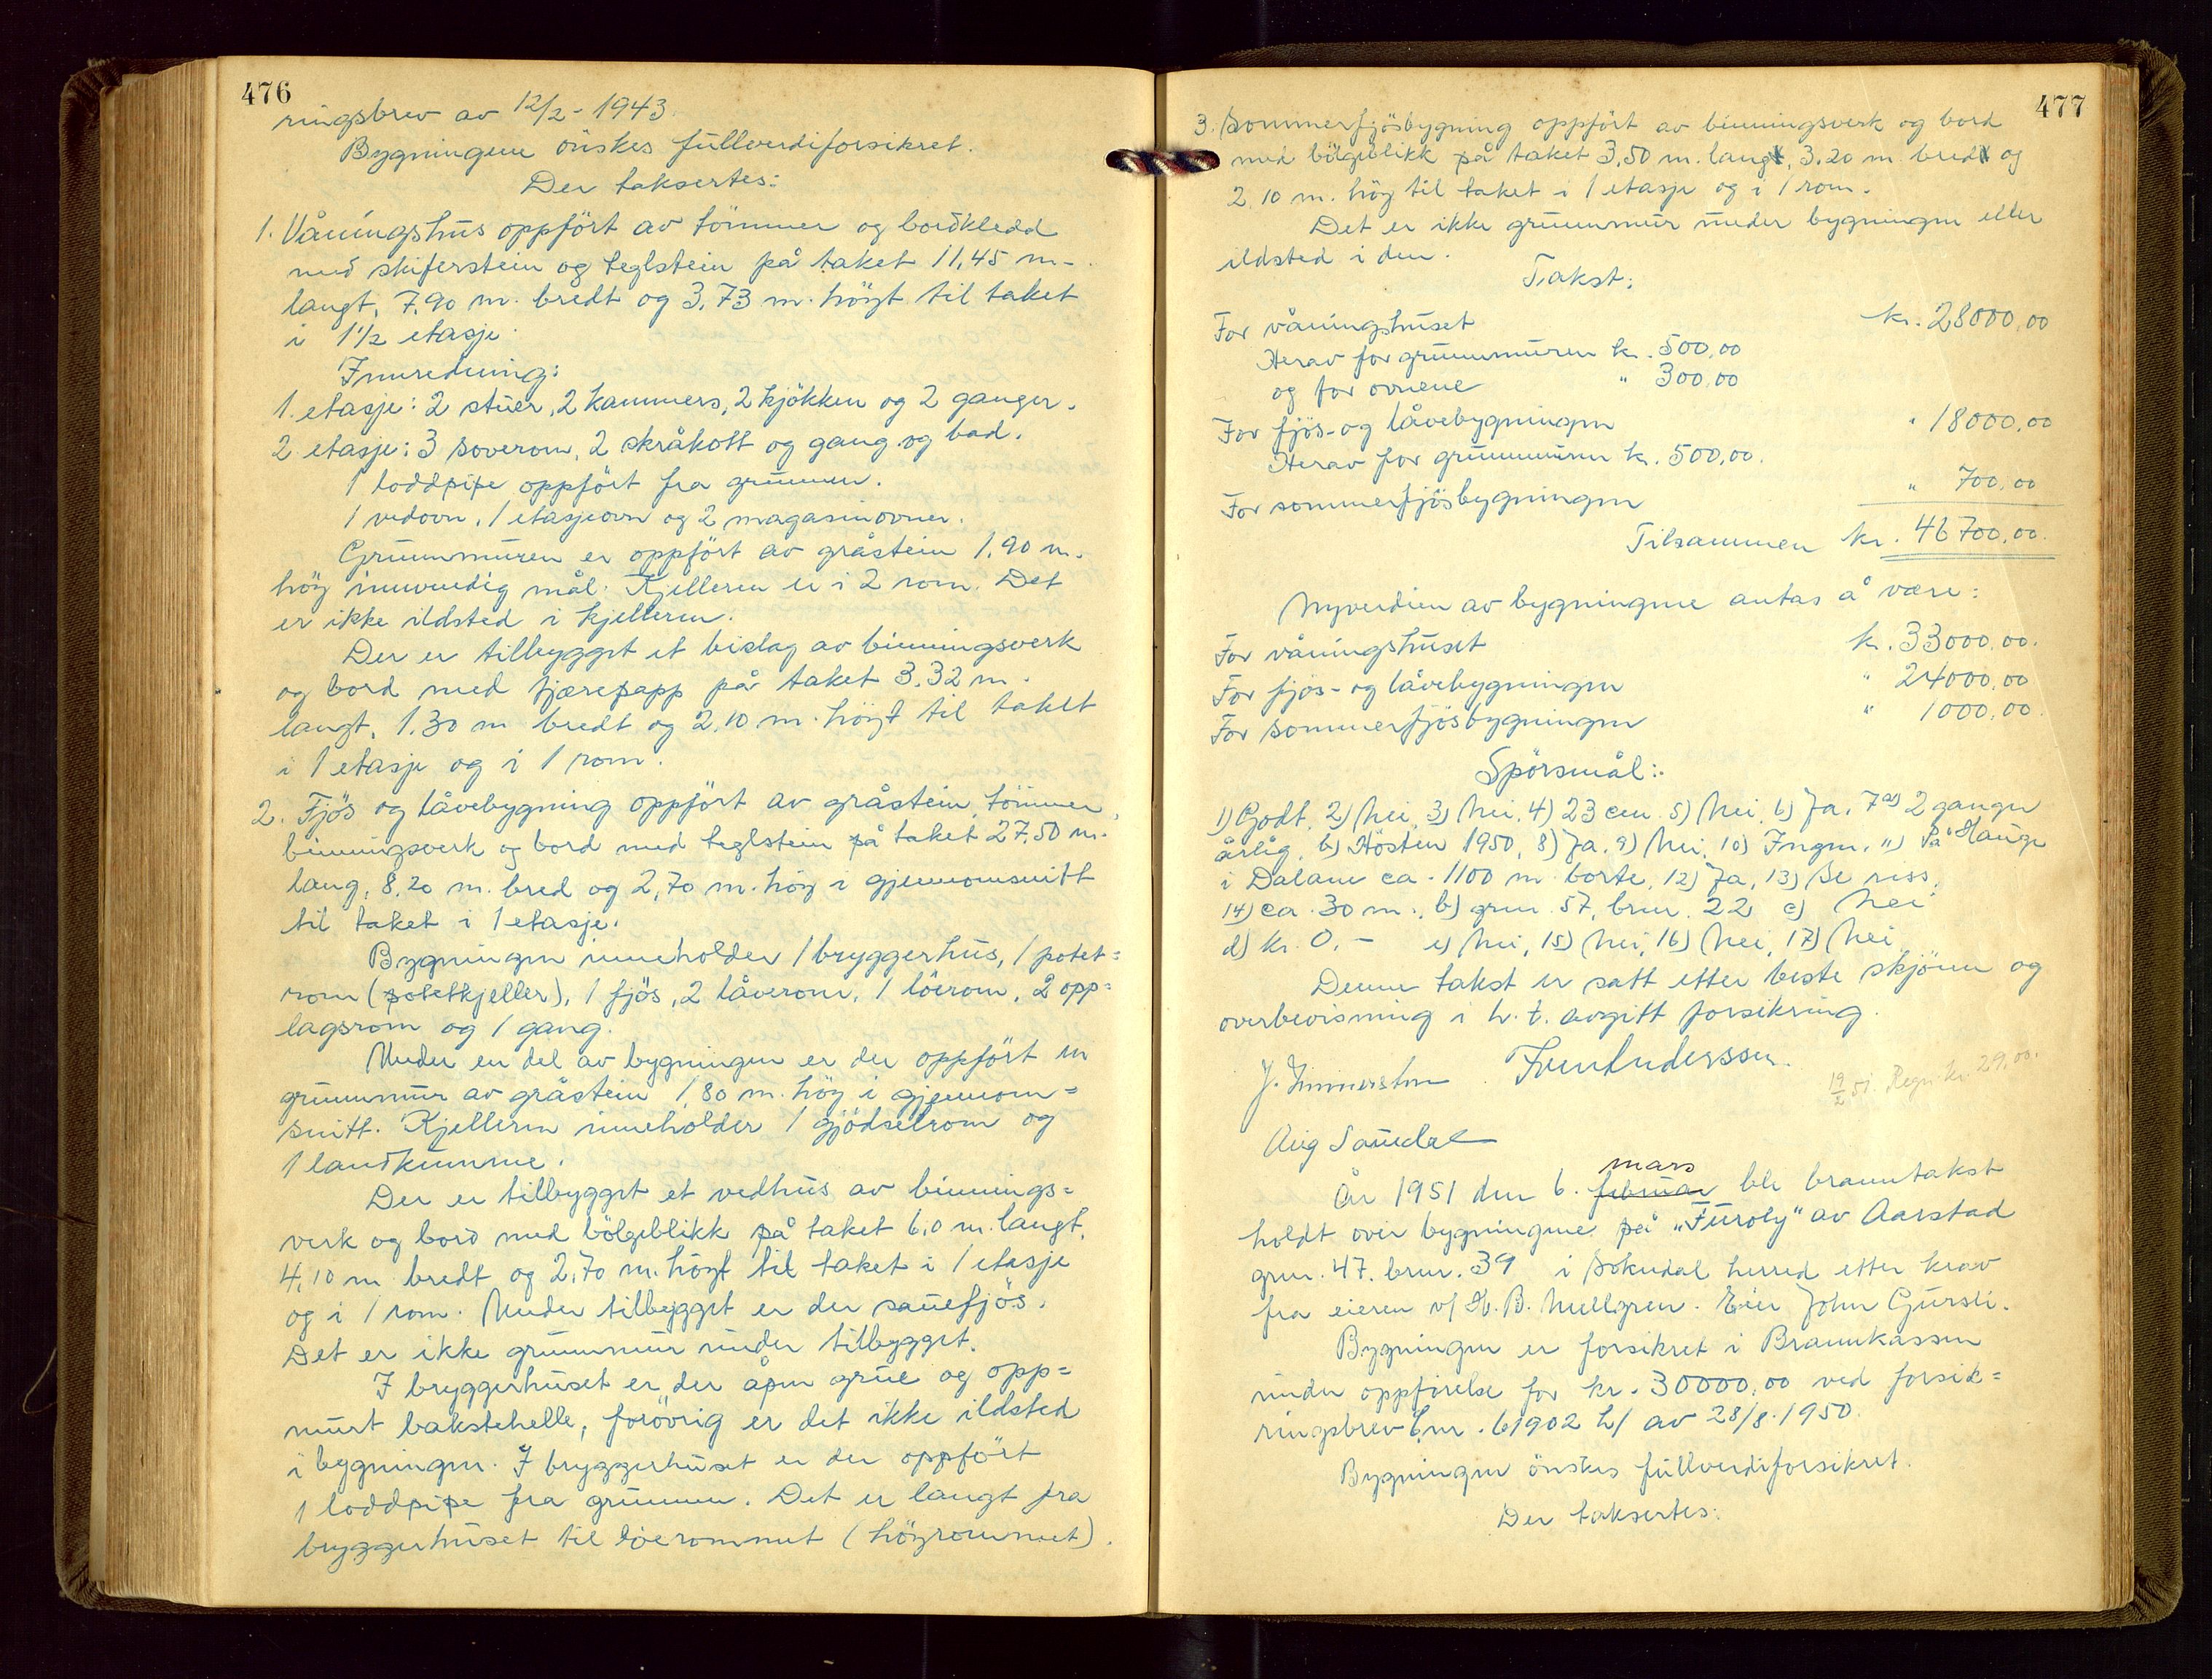 476
ringsbrev av 12/2 - 1943.
Bygningene önskes fullverdiforsikret.
Der taksertes:
1. Våningshus oppfört av tömmer og bordkledd
med skiferstein og teglstein på taket 11,45 m.
langt, 7,90 m. bredt og 3,73 m. höyt til taket
i 1 1/2 etasje.
Innredning:
1. etasje: 2 stuer, 2 kammers, 2 kjökken og 2 ganger.
2 etasje: 3 soverom, 2 skråkott og gang og bad.
1 loddpipe oppfört fra grunnen.
1 vedovn, 1 etasjeovn og 2 magasinovner.
Grunnmuren er oppfört av gråstein 1,90 m.
höy innvendig mål. Kjelleren er i 2 rom. Det
er ikke ildsted i kjelleren.
Der er tilbygget et bislag av binningsverk
og bord med tjærepapp på taket 3,32 m.
langt, 1,30 m bredt og 2,10 m. höyt til taket
i 1 etasje og i 1 rom.
2. Fjös og låvebygning oppfört av gråstein, tömmer,
binningsverk og bord med teglstein på taket 27,50 m.
lang, 8,20 m. bred og 2,70 m. höy i gjennomsnitt
til taket i 1 etasje.
Bygningen inneholder 1 bryggerhus, 1 potet=
rom (potetkjeller), 1 fjös, 2 låverom, 1 löerom, 2 opp=
lagsrom og 1 gang.
Under en del av bygningen er der oppfört en
grunnmur av gråstein 1,80 m. höy i gjennom=
snitt. Kjelleren inneholder 1 gjödselrom og
1 landkumme.
Der er tilbygget et vedhus av binnings=
verk og bord med bölgeblikk på taket 6,0 m. langt,
4,10 m bredt og 2,70 m. höyt til taket i 1 etasje
og i 1 rom. Under tilbygget er der sauefjös.
Det er ikke grunnmur under tilbygget.
I bryggerhuset er der åpen grue og opp=
murt bakstehelle, forövrig er det ikke ildsted
i bygningen. I bryggerhuset er der oppfört
1 loddpipe fra grunnen. Det er langt fra
bryggerhuset til löerommet (höyrommet).
477
3. Sommerfjösbygning oppfört av binningsverk og bord
med bölgeblikk på taket 3,50 m. lang, 3,20 m. bred og
2,10 m. höy til taket i 1 etasje og i 1 rom.
Det er ikke grunnmur under bygningen eller
ildsted i den.
Takst:
For våningshuset kr. 28000,00
Herav for grunnmuren kr. 500,00
og for ovnene " 300,00
For fjös- og låvebygningen " 18000,00
Herav for grunnmuren kr. 500,00.
For sommerfjösbygningen " 700,00
Tilsammen kr. 46700,00.
Nyverdien av bygningene antas å være:
For våningshuset kr. 33000,00.
For fjös- og låvebygningen " 24000,00
For sommerfjösbygningen " 1000,00.
Spörsmål:
1) Godt, 2) Nei, 3) Nei, 4) 23 cm. 5) Nei, 6) Ja, 7 a) 2 ganger
årlig, b) Hösten 1950, 8) Ja, 9) Nei, 10) Ingen, 11) På Hauge
i Dalane ca. 1100 m. borte, 12) Ja, 13) Se riss,
14) ca. 30 m., b) gnr. 57, bnr. 22 c) Nei
d) kr. 0,- e) Nei, 15) Nei, 16) Nei, 17) Nei
Denne takst er satt etter beste skjönn og
overbevisning i h. t. avgitt forsikring.
19/2 51. Regn. kr. 29,00.
Aug Sauedal
År 1951 den 6. februar mars ble branntakst
holdt over bygningene på "Furoly" av Aarstad
gnr. 47. bnr. 39 i Sokndal herred etter krav
fra eieren v/ H. B. Mellgren. Eier John Gursli.
Bygningen er forsikret i Brannkassen
under oppförelse for kr. 30000,00 ved forsik=
ringsbrev 61902 av 28/8. 1950.
Bygningen önskes fullverdiforsikret.
Der taksertes: